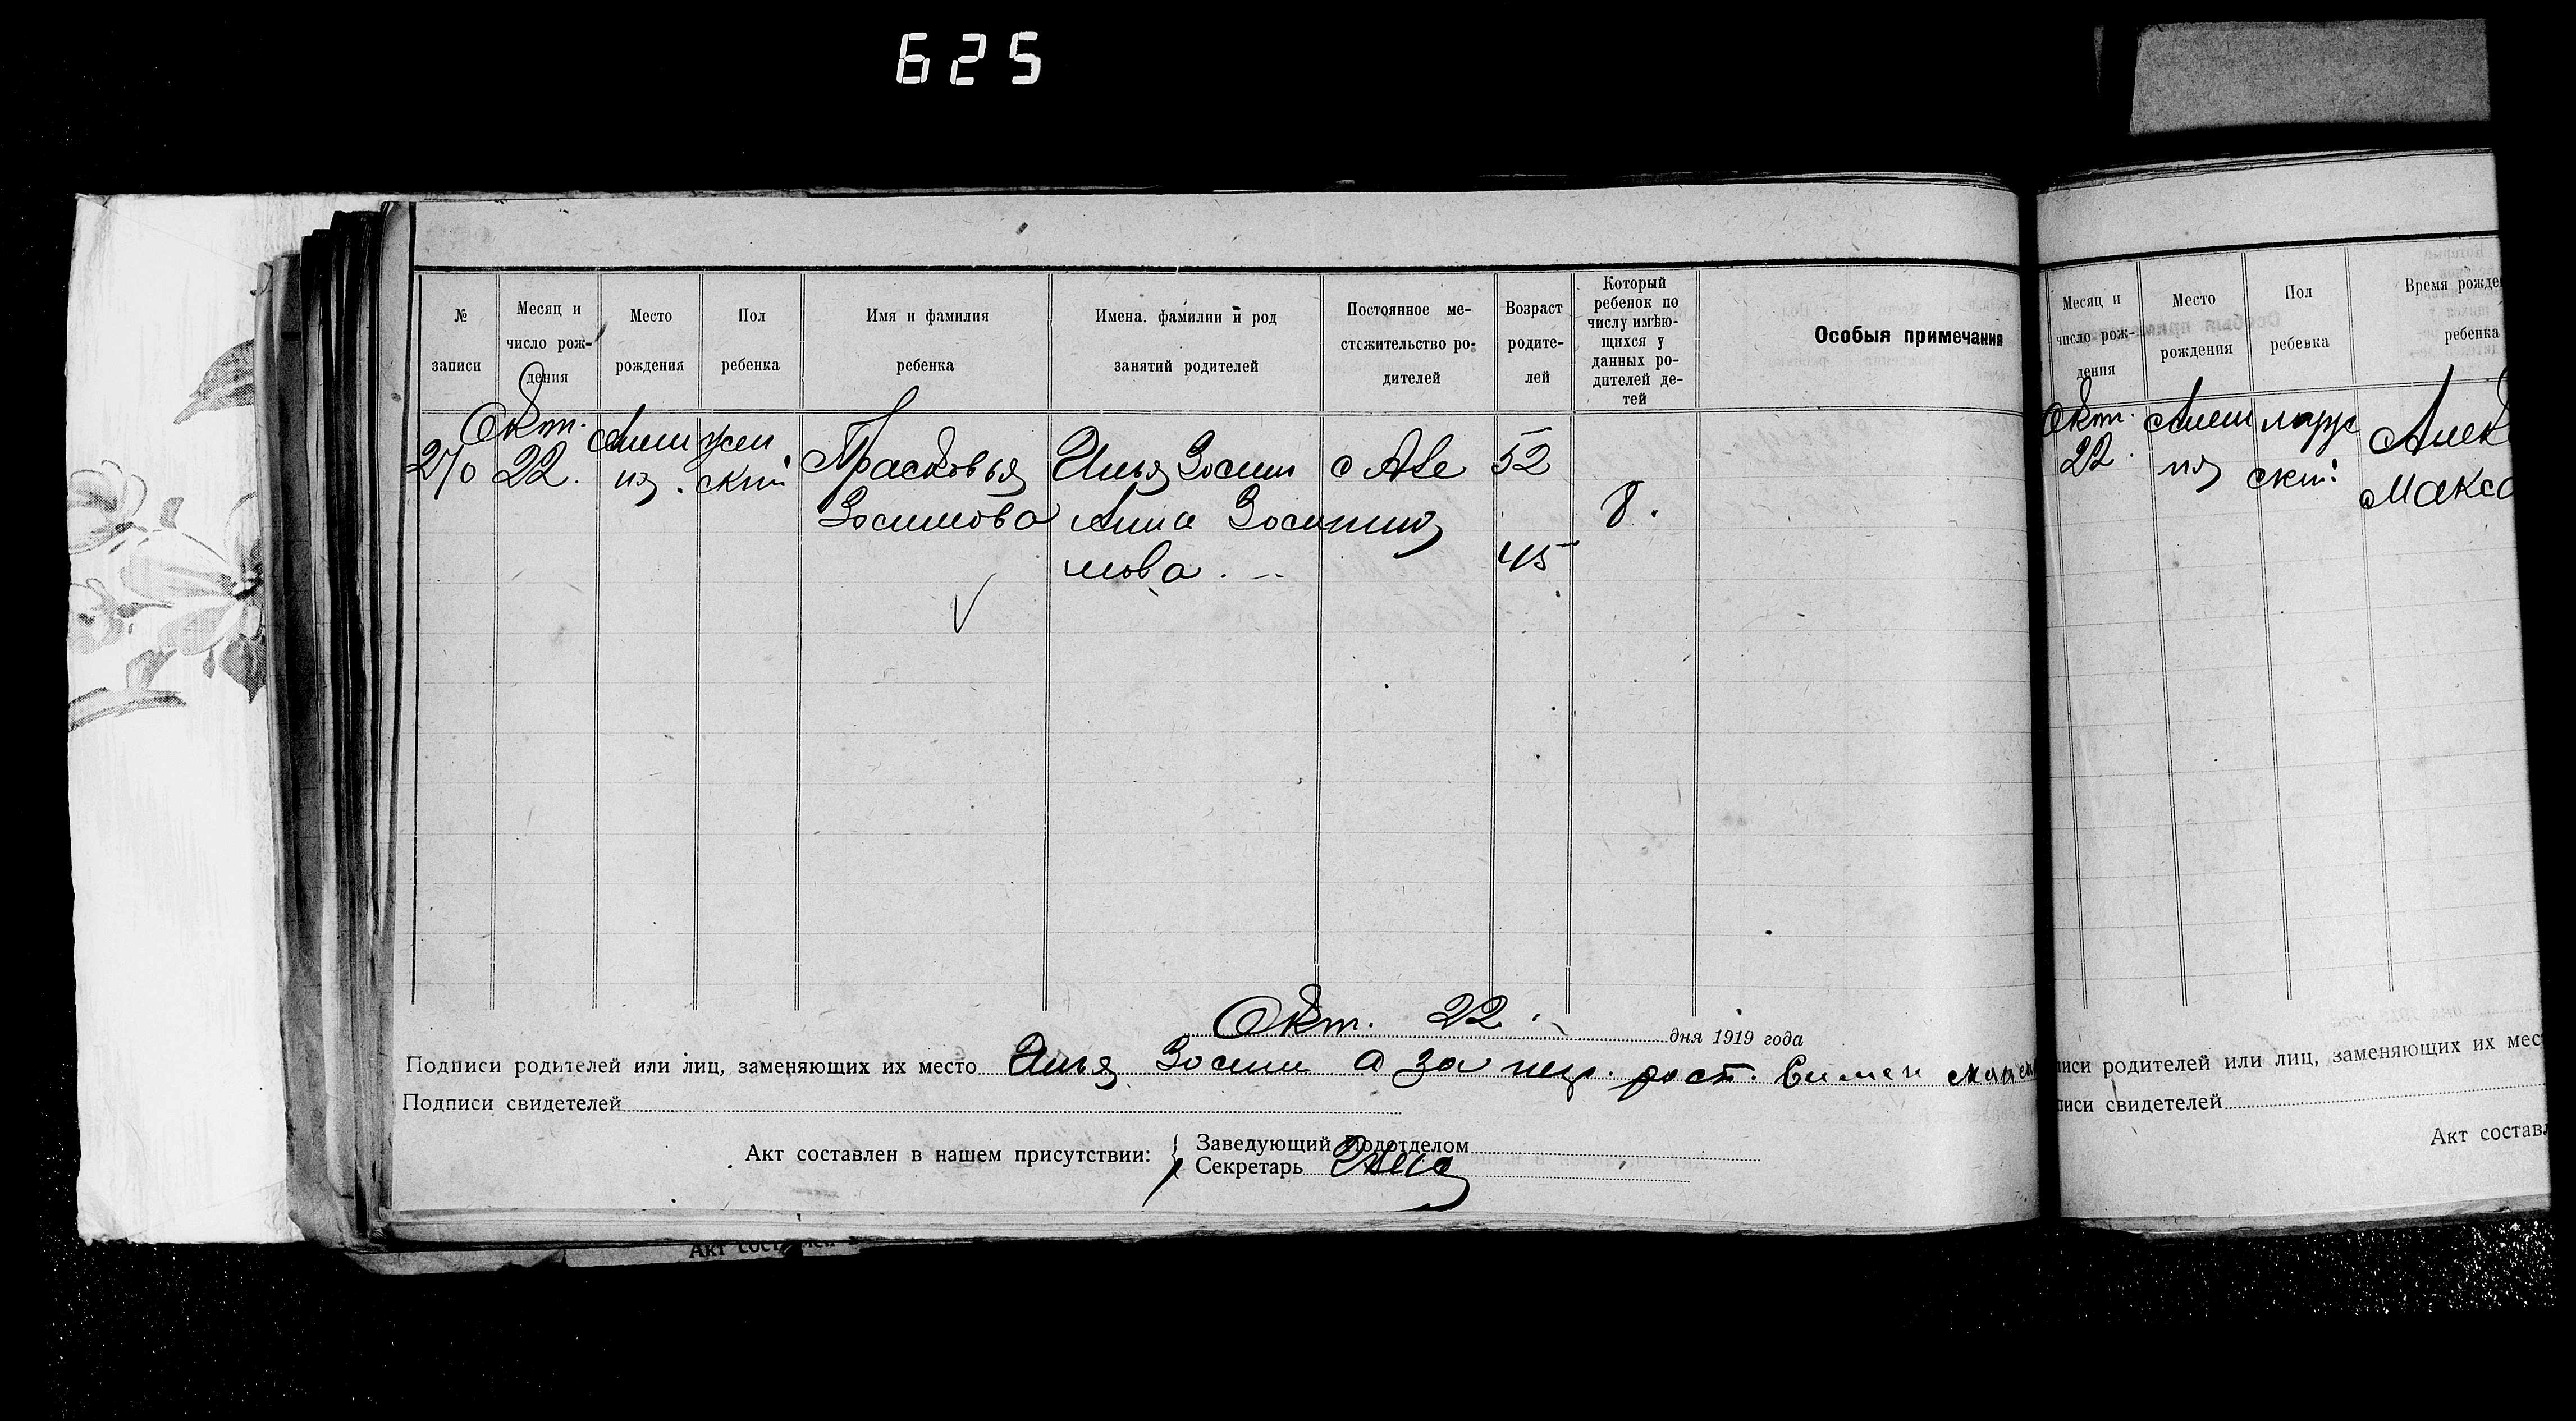 625
№ записи
Месяц и число рож-дения
Место рождения
Пол ребенка
Имя и фамилия ребенка
Имена. фамилии и род занятий родителей
Постоянное ме-стожительство ро-дителей
Возраст родите-лей
Который ребенок по числу имѣю-щихся у данных ро-дителей де-тей
Особыя примечания
Окт.
270 22. жен
ский Прасковья Илья Зосим 52
Зосимова Анна Зоси 8.
мова. 45
Окт. 22. дня 1919 года
Подписи родителей или лиц, заменяющих их место Илья Зосим а за
Подписи свидетелей
Акт составлен в нашем присутствии:
Заведующий Подотделом
Секретарь
Месяц и число рож-дения
Место рождения
Пол ребенка
Время рожде
ребенка
Окт.
22.
ский
Алек
Макс
писи родителей или лиц, заменяющих их мес
писи свидетелей
Акт состав